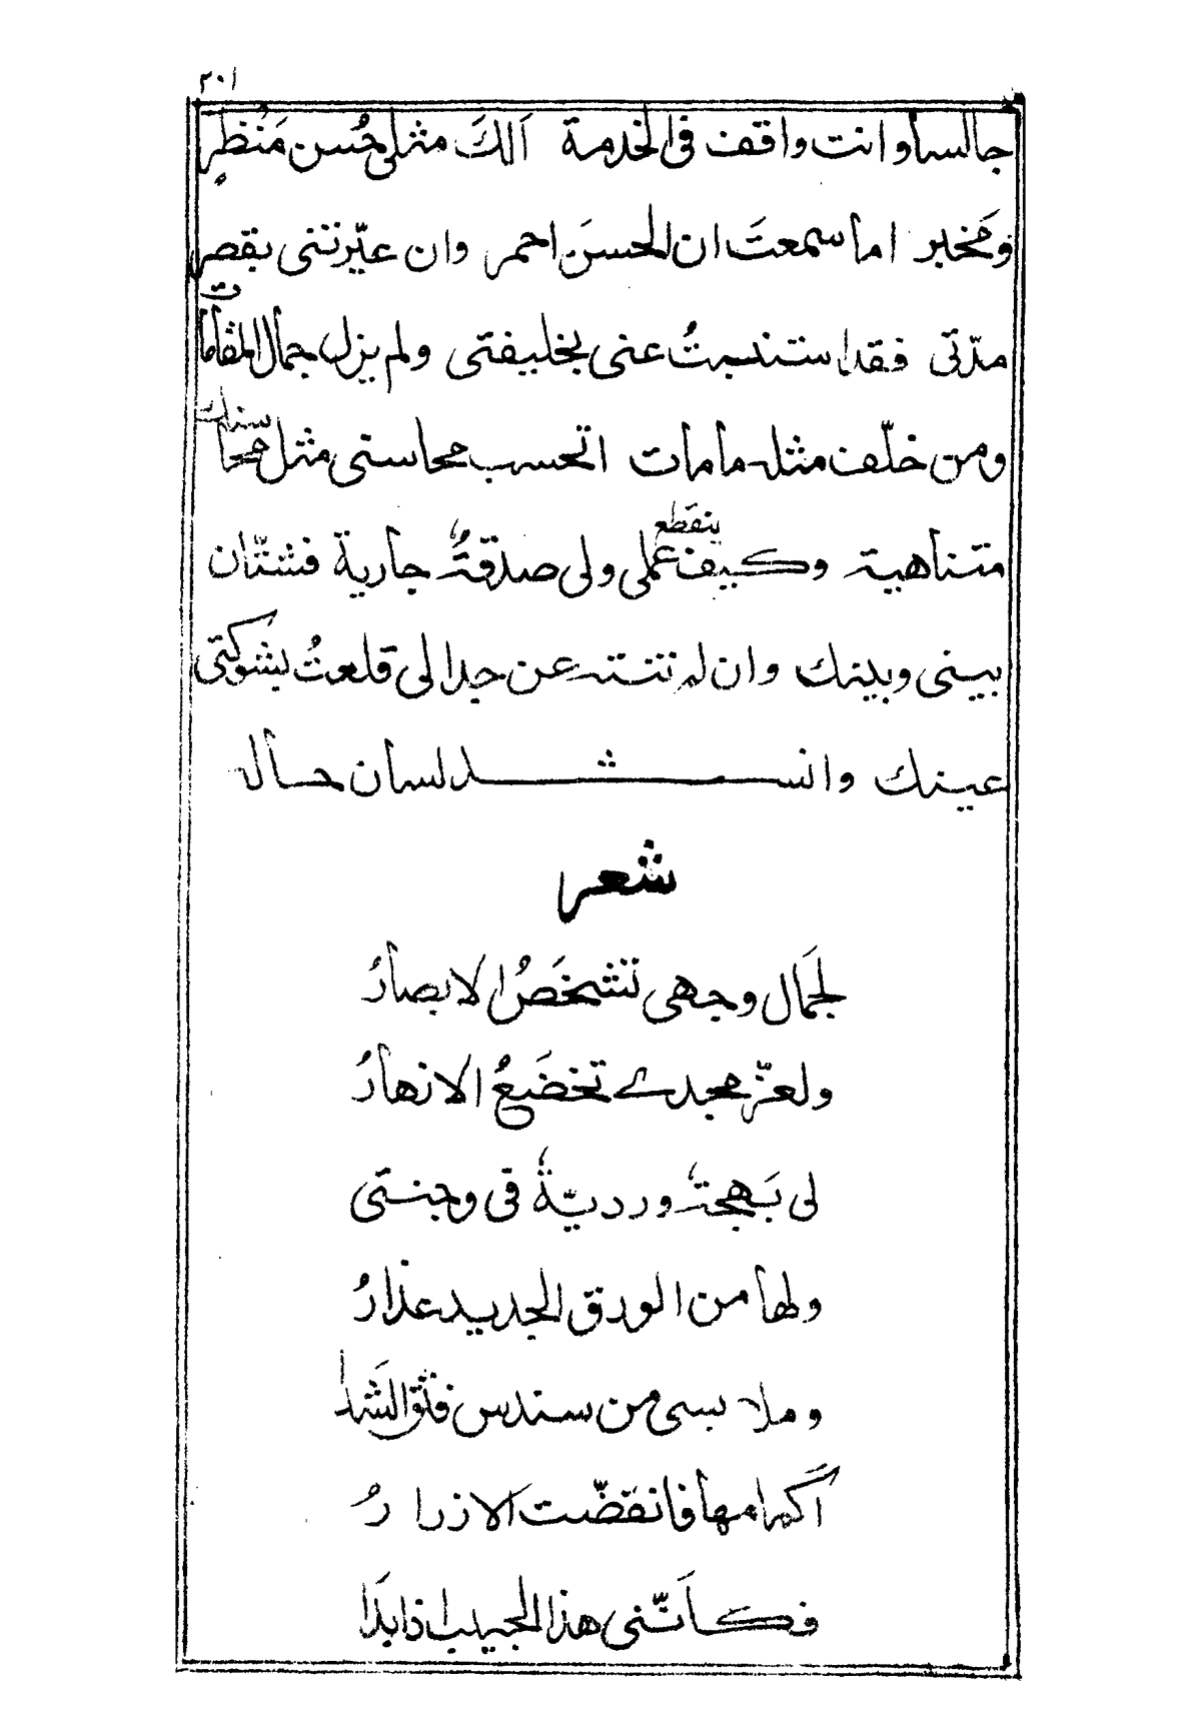 ٢٠١
جالسا وانت واقف فى الخدمة اَلَكَ مثلى حُسن مَنْظَرٍ
ومَخبر اما سمعتَ ان الحسنَ احمر وان عيّرتنى بقصر
مدّتى فقد استنبتُ عنى بخليفتى ولم يزل جمال المقامات
ومن خلّف مثله ما مات اتحسب محاسنى مثل محاسنك
متناهية وكيف ينقطع عملى ولى صدقةٌ جارية فشتّان
بينى وبينك وان لم تنته عن جدالى قلعتُ بشوكتى
عينك وانشد لسان حاله
شعر
لجَمال وجهى تشخَصُ الابصارُ
ولعزّ مجدى تخضَعُ الازهارُ
لى بَهجة ورديّةٌ فى وجنتى
ولها من الورق الجديد عذارُ
وملابسى من سندس فتق الشَذا
اَكمامها فانفضّت الازرارُ
فكأَنّنى هذا الحبيب اذا بَدَا